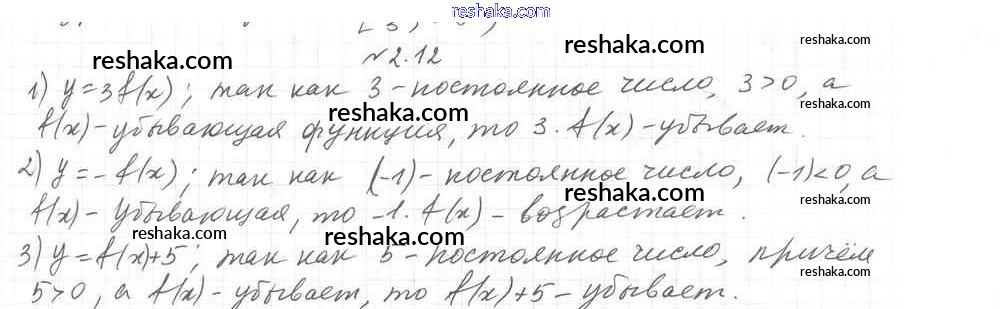 reshaka.com
№2.12
1) y=3f(x); так как 3 - постоянное число, 3>0, а
f(x) - убывающая функция, то 3·f(x) - убывает.
2) y=-f(x); так как (-1) - постоянное число, (-1)<0, а
f(x) - убывающая, то -1·f(x) - возрастает.
3) y=f(x)+5; так как 5 - постоянное число, причём
5>0, а f(x) - убывает, то f(x)+5 - убывает.
reshaka.com
reshaka.com
reshaka.com
reshaka.com
reshaka.com
reshaka.com
reshaka.com
reshaka.com
reshaka.com
reshaka.com